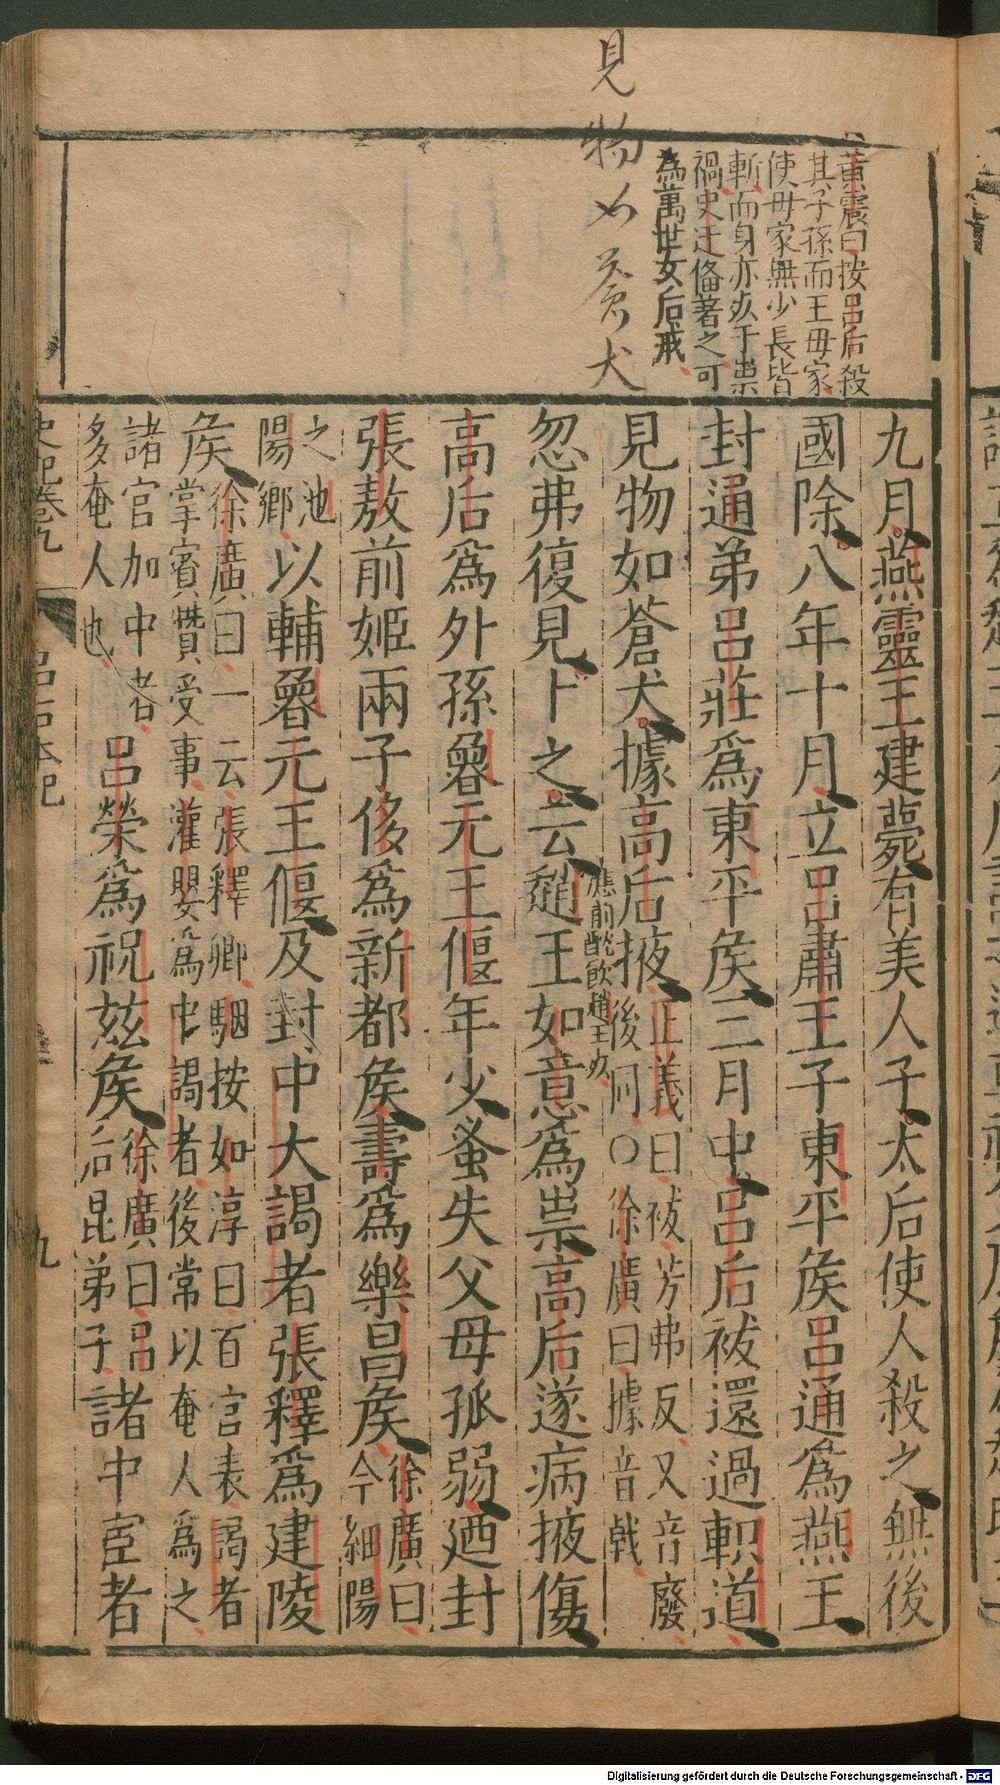 見物如蒼犬
黄震曰按呂后殺
其子孫而王母家
使母家無少長皆
斬而身亦㱱于祟
禍史迁俻著之可
為萬世女后戒
九月燕靈王建薨有美人子太后使人殺之無後
國除八年十月立呂肅王子東平矦呂通爲燕王
封通弟呂莊爲東平矦三月中呂后祓還過軹道
見物如蒼犬據高后掖
正義曰祓芳弗反又音廢
後同〇徐廣曰據音戟
應前酖飲趙王㱱
忽弗復見卜之云趙王如意爲祟高后遂病掖傷
高后爲外孫魯元王偃年少蚤失父母孤弱廼封
張敖前姬兩子侈爲新都矦壽爲樂昌矦
徐廣曰
今細陽
之池
陽鄉
以輔魯元王偃及封中大謁者張釋爲建陵
矦
徐廣曰一云張釋卿駰按如淳曰百官表謁者
掌賓贊受事灌嬰爲中謁者後常以奄人爲之
諸官加中者
多奄人也
呂榮爲祝玆矦
徐廣曰呂
后昆弟子
諸中宦者
史記卷九
呂后本紀
九
Digitalisierung gefördert durch die Deutsche Forschungsgemeinschaft - DFG